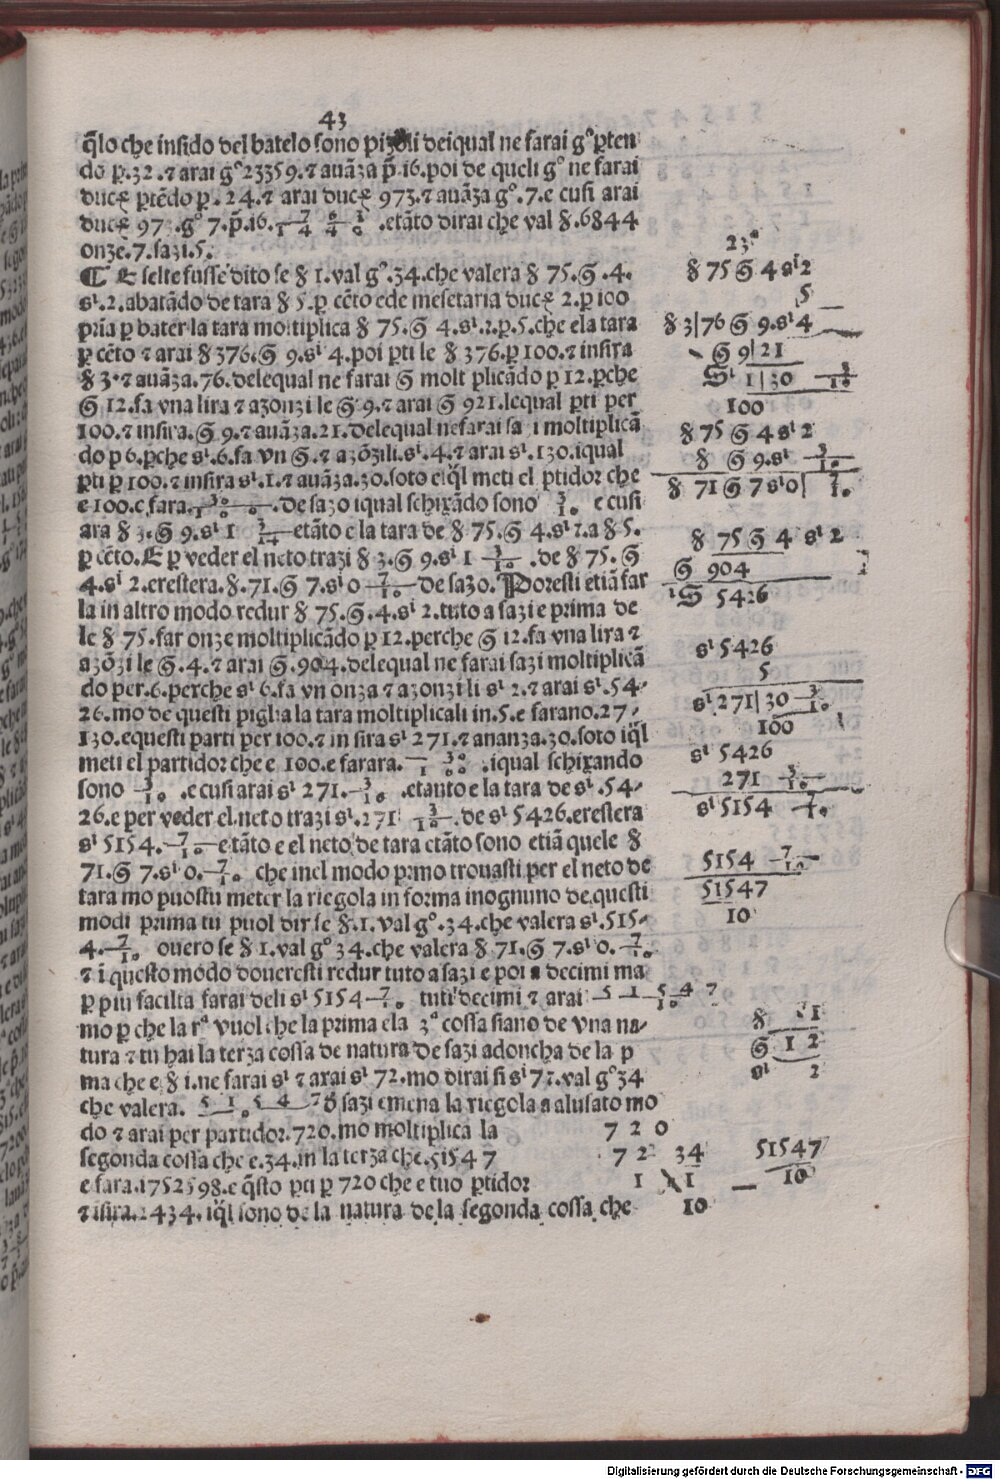 43
q̃lo che insido del batelo sono pizoli deiqual ne farai gº p̱ten
do p̱.32.⁊ arai gº 23359.⁊ auãza p̃.16.poi de queli gº ne farai
duc̨ p̱tẽdo p̱.24.⁊ arai duc̨ 973.⁊ auãza gº.7.e cusi arai
duc̨ 973.gº 7.p̃.16. .etãto dirai che val ꝸ.6844
onze.7.sazi.5.
¶ E selte fusse dito se ꝸ 1.val gº.34.che valera ꝸ 75.Ᏽ.4.
sⁱ.2.abatãdo de tara ꝸ 5.p̱ cẽto ede mesetaria duc̨ 2.p̱ 100
p̱ria p̱ bater la tara moltiplica ꝸ 75.Ᏽ 4.sⁱ.2.p̱.5.che ela tara
p̱ cẽto ⁊ arai ꝸ 376.Ᏽ 9.sⁱ 4.poi p̱ti le ꝸ 376.p̱ 100.⁊ insira
ꝸ 3.⁊ auãza.76.delequal ne farai Ᏽ molt plicãdo p̱ 12.p̱che
Ᏽ 12.fa vna lira ⁊ azonzi le Ᏽ 9.⁊ arai Ᏽ 921.lequal p̱ti per
100.⁊ insira.Ᏽ 9.⁊ auãza.21.delequal nefarai sa i moltiplicã
do p̱ 6.p̱che sⁱ.6.fa vn Ᏽ.⁊ azõzili.sⁱ.4.⁊ arai sⁱ.130.iqual
p̱ti p̱ 100.⁊ insira sⁱ.1.⁊ auãza.30.soto eiq̃l meti el p̱tidor che
e 100.e fara. 30/100 .de sazo iqual schixãdo sono 3/10 e cusi
ara ꝸ 3.Ᏽ 9.sⁱ 1 3/10 etãto e la tara de ꝸ 75.Ᏽ 4.sⁱ 2.a ꝸ 5.
p̱ cẽto.E p̱ veder el neto trazi ꝸ 3.Ᏽ 9.sⁱ 1 3/10 .de ꝸ 75.Ᏽ
4.sⁱ 2.erestera.ꝸ.71.Ᏽ 7.sⁱ 0 7/10 de sazo.Poresti etiã far
la in altro modo redur ꝸ 75.Ᏽ.4.sⁱ 2.tuto a sazi e prima de
le ꝸ 75.far onze moltiplicãdo p̱ 12.perche Ᏽ 12.fa vna lira ⁊
azõzi le Ᏽ.4.⁊ arai Ᏽ.904.delequal ne farai sazi moltiplicã
do per.6.perche sⁱ 6.fa vn onza ⁊ azonzi li sⁱ 2.⁊ arai sⁱ.54⸗
26.mo de questi piglia la tara moltiplicali in.5.e farano.27⸗
130.equesti parti per 100.⁊ in sira sⁱ 271.⁊ ananza.30.soto iq̃l
meti el partidor che e 100.e farara. 30/100 .iqual schixando
sono 3/10 .e cusi arai sⁱ 271. 3/10 .etanto e la tara de sⁱ.54⸗
26.e per veder el neto trazi sⁱ.271 3/10 .de sⁱ 5426.erestera
sⁱ 5154. 7/10 etãto e el neto de tara ctãto sono etiã quele ꝸ
71.Ᏽ 7.sⁱ 0. 7/10 che inel modo p̱rmo trouasti per el neto de
tara mo puostu meter la riegola in forma inognuno de questi
modi prima tu puol dir se ꝸ.1.val gº.34.che valera sⁱ.515⸗
4. 7/10 ouero se ꝸ 1.val gº 34.che valera ꝸ 71.Ᏽ 7.sⁱ 0. 7/10
⁊ ĩ questo modo doueresti redur tuto a sazi e poi a decimi ma
p̱ piu facilita farai deli sⁱ 5154 7/10 tuti decimi ⁊ arai 51547/10
mo p̱ che la rª vuol che la prima ela 3ª cossa siano de vna na⸗
tura ⁊ tu hai la terza cossa de natura de sazi adoncha de la p
ma che e ꝸ 1.ne farai sⁱ ⁊ arai sⁱ 72.mo dirai si sⁱ 72.val gº 34
che valera. 51547/10 d̃ sazi emena la riegola a alusato mo
do ⁊ arai per partidor.720.mo moltiplica la
segonda cossa che e.34.in la terza che.51547
e fara.1752598.e q̃sto p̱ti p̱ 720 che e tuo p̱tidor
⁊ isira.2434.iq̃l sono de la natura de la segonda cossa che
23ª
ꝸ 75 Ᏽ 4 sⁱ 2
5
ꝸ 3|76 Ᏽ 9.sⁱ 4
Ᏽ 9|21
Sⁱ 1|30 3/10
100
ꝸ 75 Ᏽ 4 sⁱ 2
ꝸ Ᏽ 9.sⁱ 3/10
ꝸ 71 Ᏽ 7 sⁱ 0| 7/10
ꝸ 75 Ᏽ 4 sⁱ 2
Ᏽ 904
Sⁱ 5426
sⁱ 5426
5
sⁱ.271|30 3/10
100
sⁱ 5426
271 3/10
sⁱ 5154 7/10
5154 7/10
51547
10
ꝸ 1
Ᏽ 12
sⁱ 2
7 2 0
72 34 51547
1 1 10
10
Digitalisierung gefördert durch die Deutsche Forschungsgemeinschaft - DFG